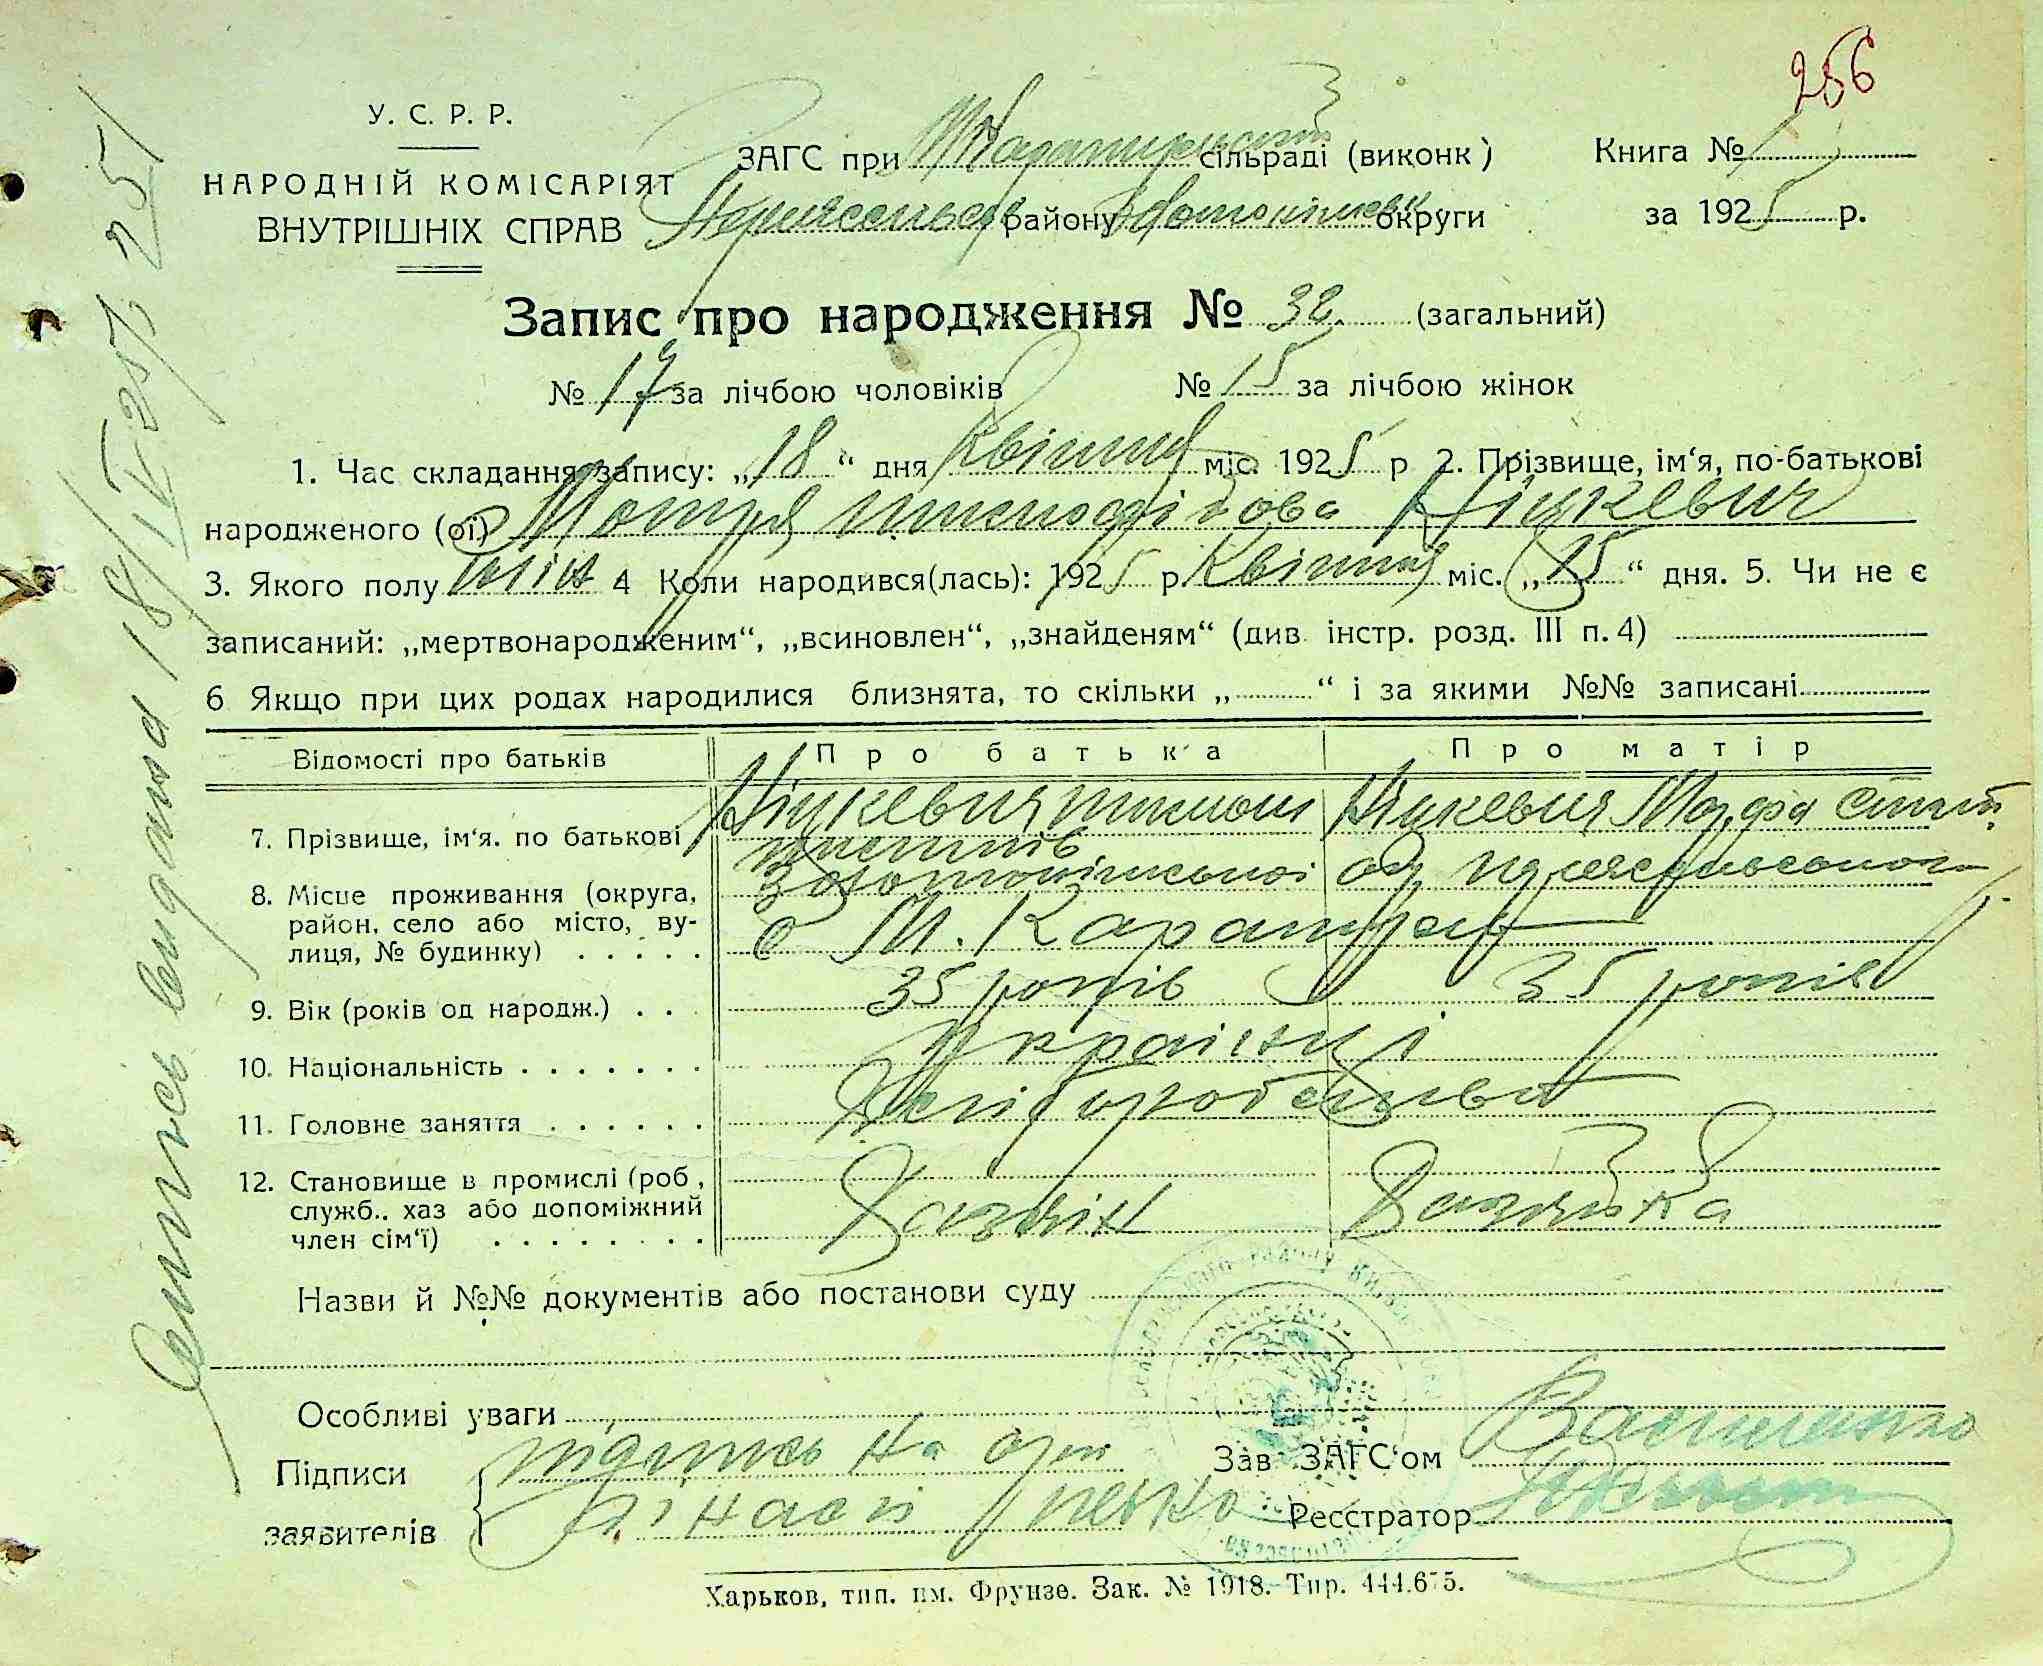 256
У. С. Р. Р.
НАРОДНІЙ КОМІСАРІЯТ
ВНУТРІШНІХ СПРАВ
ЗАГС при М Каратульській сільраді (виконк)
району округи
Книга № 1
за 1925 р.
Запис про народження № 32 (загальний)
№ 17 за лічбою чоловіків № 15 за лічбою жінок
1. Час складання запису: „18“ дня Квітня міс. 1925 р 2. Прізвище, ім‘я, по-батькові
народженого (ої) Мотря Ніцкевич
3. Якого полу 4 Коли народився(лась): 1925 р Квітня міс. „15“ дня. 5. Чи не є
записаний: „мертвонародженим“, „всиновлен“, „знайденям“ (див. інстр. розд. III п. 4)
6 Якщо при цих родах народилися близнята, то скільки „ “ і за якими №№ записані
Відомості про батьків Про батька Про матір
7. Прізвище, ім‘я. по батькові Ніцкевич Ніцкевич Марфа
8. Місце проживання (округа, район, село або місто, вулиця, № будинку) Золотонішської ок. Переяславського
с М. Каратуль
9. Вік (років од народж.) 35 років 35 років
10. Національність Українці
11. Головне заняття Хліборобство
12. Становище в промислі (роб, служб., хаз або допоміжний член сім‘ї) Хазяїн Хазяйка
Назви й №№ документів або постанови суду
Особливі уваги
Підписи
заявителів
підпись на
Зав ЗАГС‘ом Василенко
Реєстратор
Харьков, тип. им. Фрунзе. Зак. № 1918. Тир. 444.675.
Випись видана 18/IV 25 р.